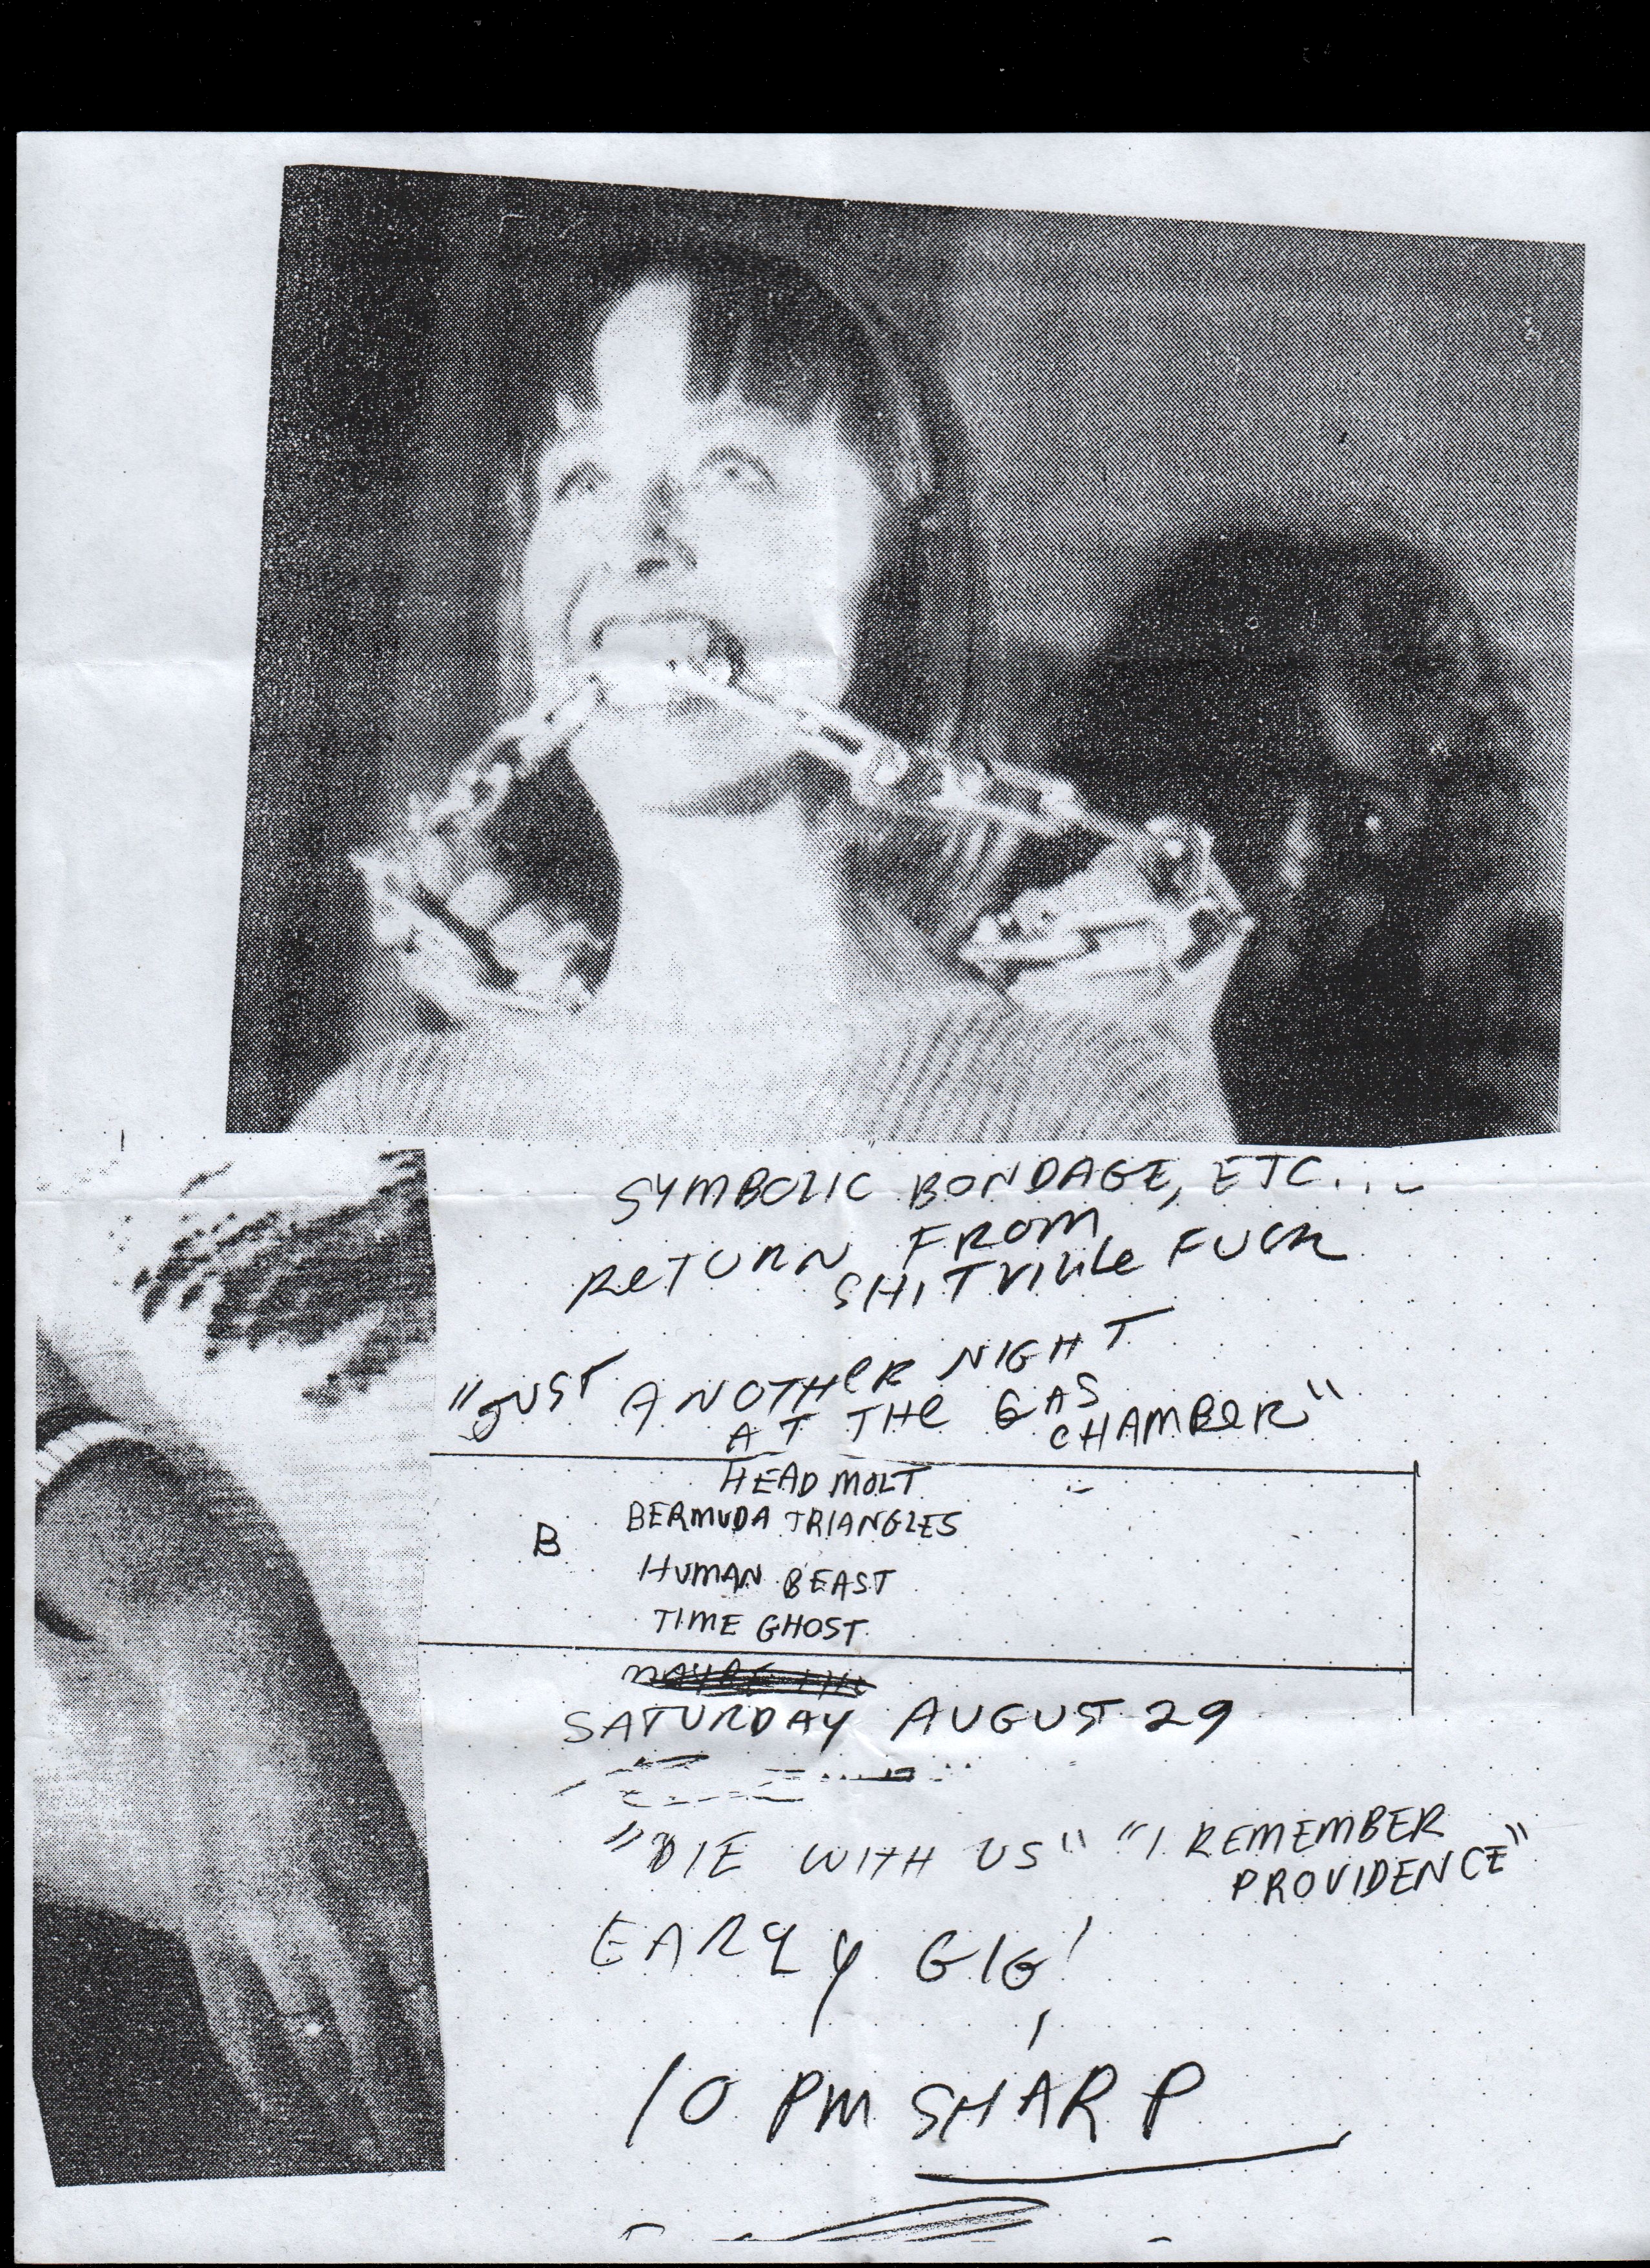 SYMBOLIC BONDAGE, ETC...
RETURN FROM
SHITVILLE FUCK
"JUST ANOTHER NIGHT
AT THE GAS
CHAMBER"
HEAD MOLT
BERMUDA TRIANGLES
B
HUMAN BEAST
TIME GHOST
SATURDAY AUGUST 29
"DIE WITH US" "I REMEMBER
PROVIDENCE"
EARLY GIG!
10 PM SHARP